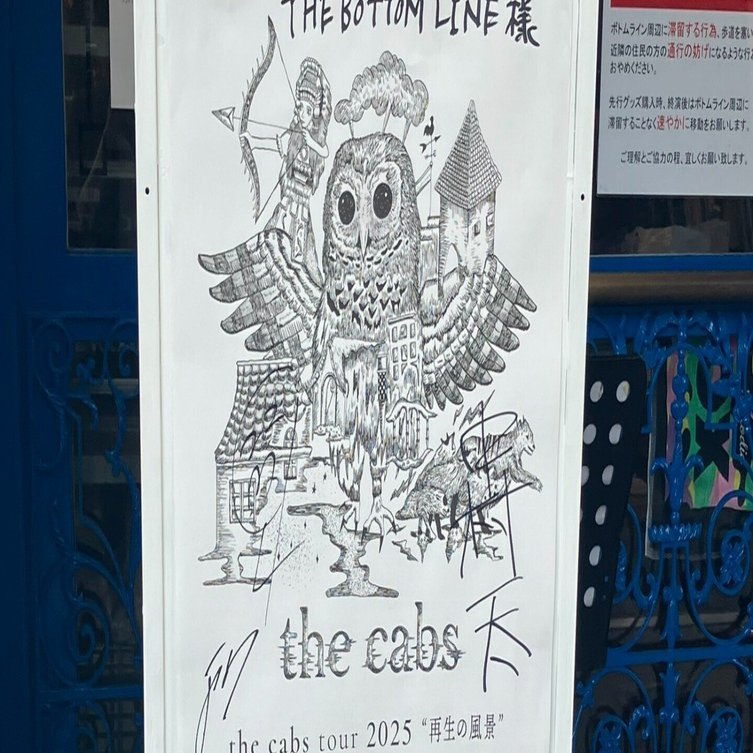 THE BOTTOM LINE 様
ボトムライン周辺に滞留する行為、歩道を塞い
近隣の住民の方の通行の妨げになるような行為
おやめください。
先行グッズ購入時、終演後はボトムライン周辺に
滞留することなく速やかに移動をお願いします。
ご理解とご協力の程、宜しくお願い致します。
the cabs
jin
the cabs tour 2025 “再生の風景”